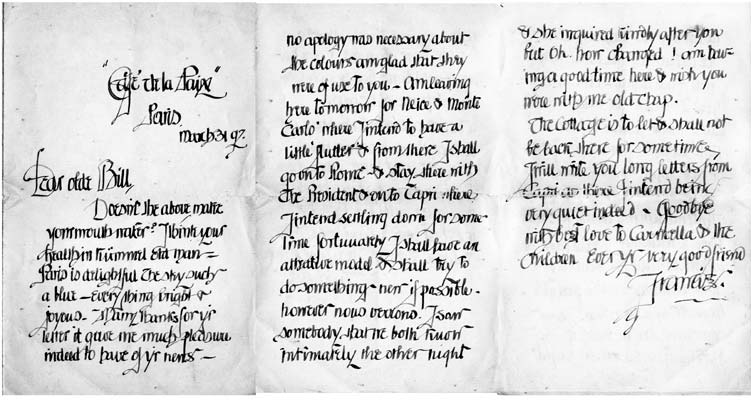 "Café de la Paix"
Paris,
March 31 97.
Dear olde Bill,
Doesn't the above make
your mouth water? I drink your
health in rummed Eta man =
Paris is delightful the sky such
a blue – Everything bright &
joyous – Many thanks for yr
letter it gave me much pleasure
indeed to have of yr news –
no apology was necessary about
the colours am glad that they
were of use to you – Am leaving
here tomorrow for Neice & Monte
Carlo where I intend to have a
little flutter & from there I shall
go on to Rome & stay there with
the President & on to Capri where
I intend settling down for some
time fortunately I shall have an
attrative model & shall try to
do something – new if possible –
however nous verrons. I saw
somebody that we both know
intimately the other night
& she inquired kindly after you
but Oh. how changed! am hav-
ing a good time here & wish you
were with me old chap.
The Cottage is to let & shall not
be back there for some time,
I will write you long letters from
Capri as there I intend being
very quiet indeed – Goodbye
with best love to & the
children Ever yr very good friend
Francis.